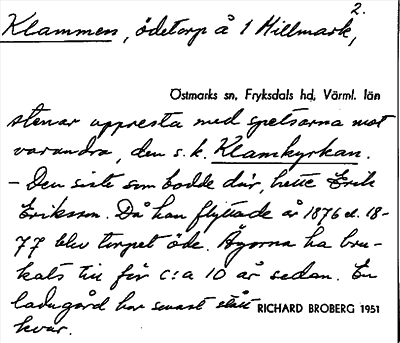 2.
Klammen, ödetorp å 1 Hillmark,
Östmarks sn, Fryksdals hd, Värml. län
stenar uppresta med spetsarna mot
varandra, den s.k. Klamkyrkan.
– Den siste som bodde där, hette Erik
Eriksson. Då han flyttade år 1876 el. 18-
77 blev torpet öde. Ägorna ha bru-
kats till för c:a 10 år sedan. En
ladugård har senast stått
RICHARD BROBERG 1951
kvar.